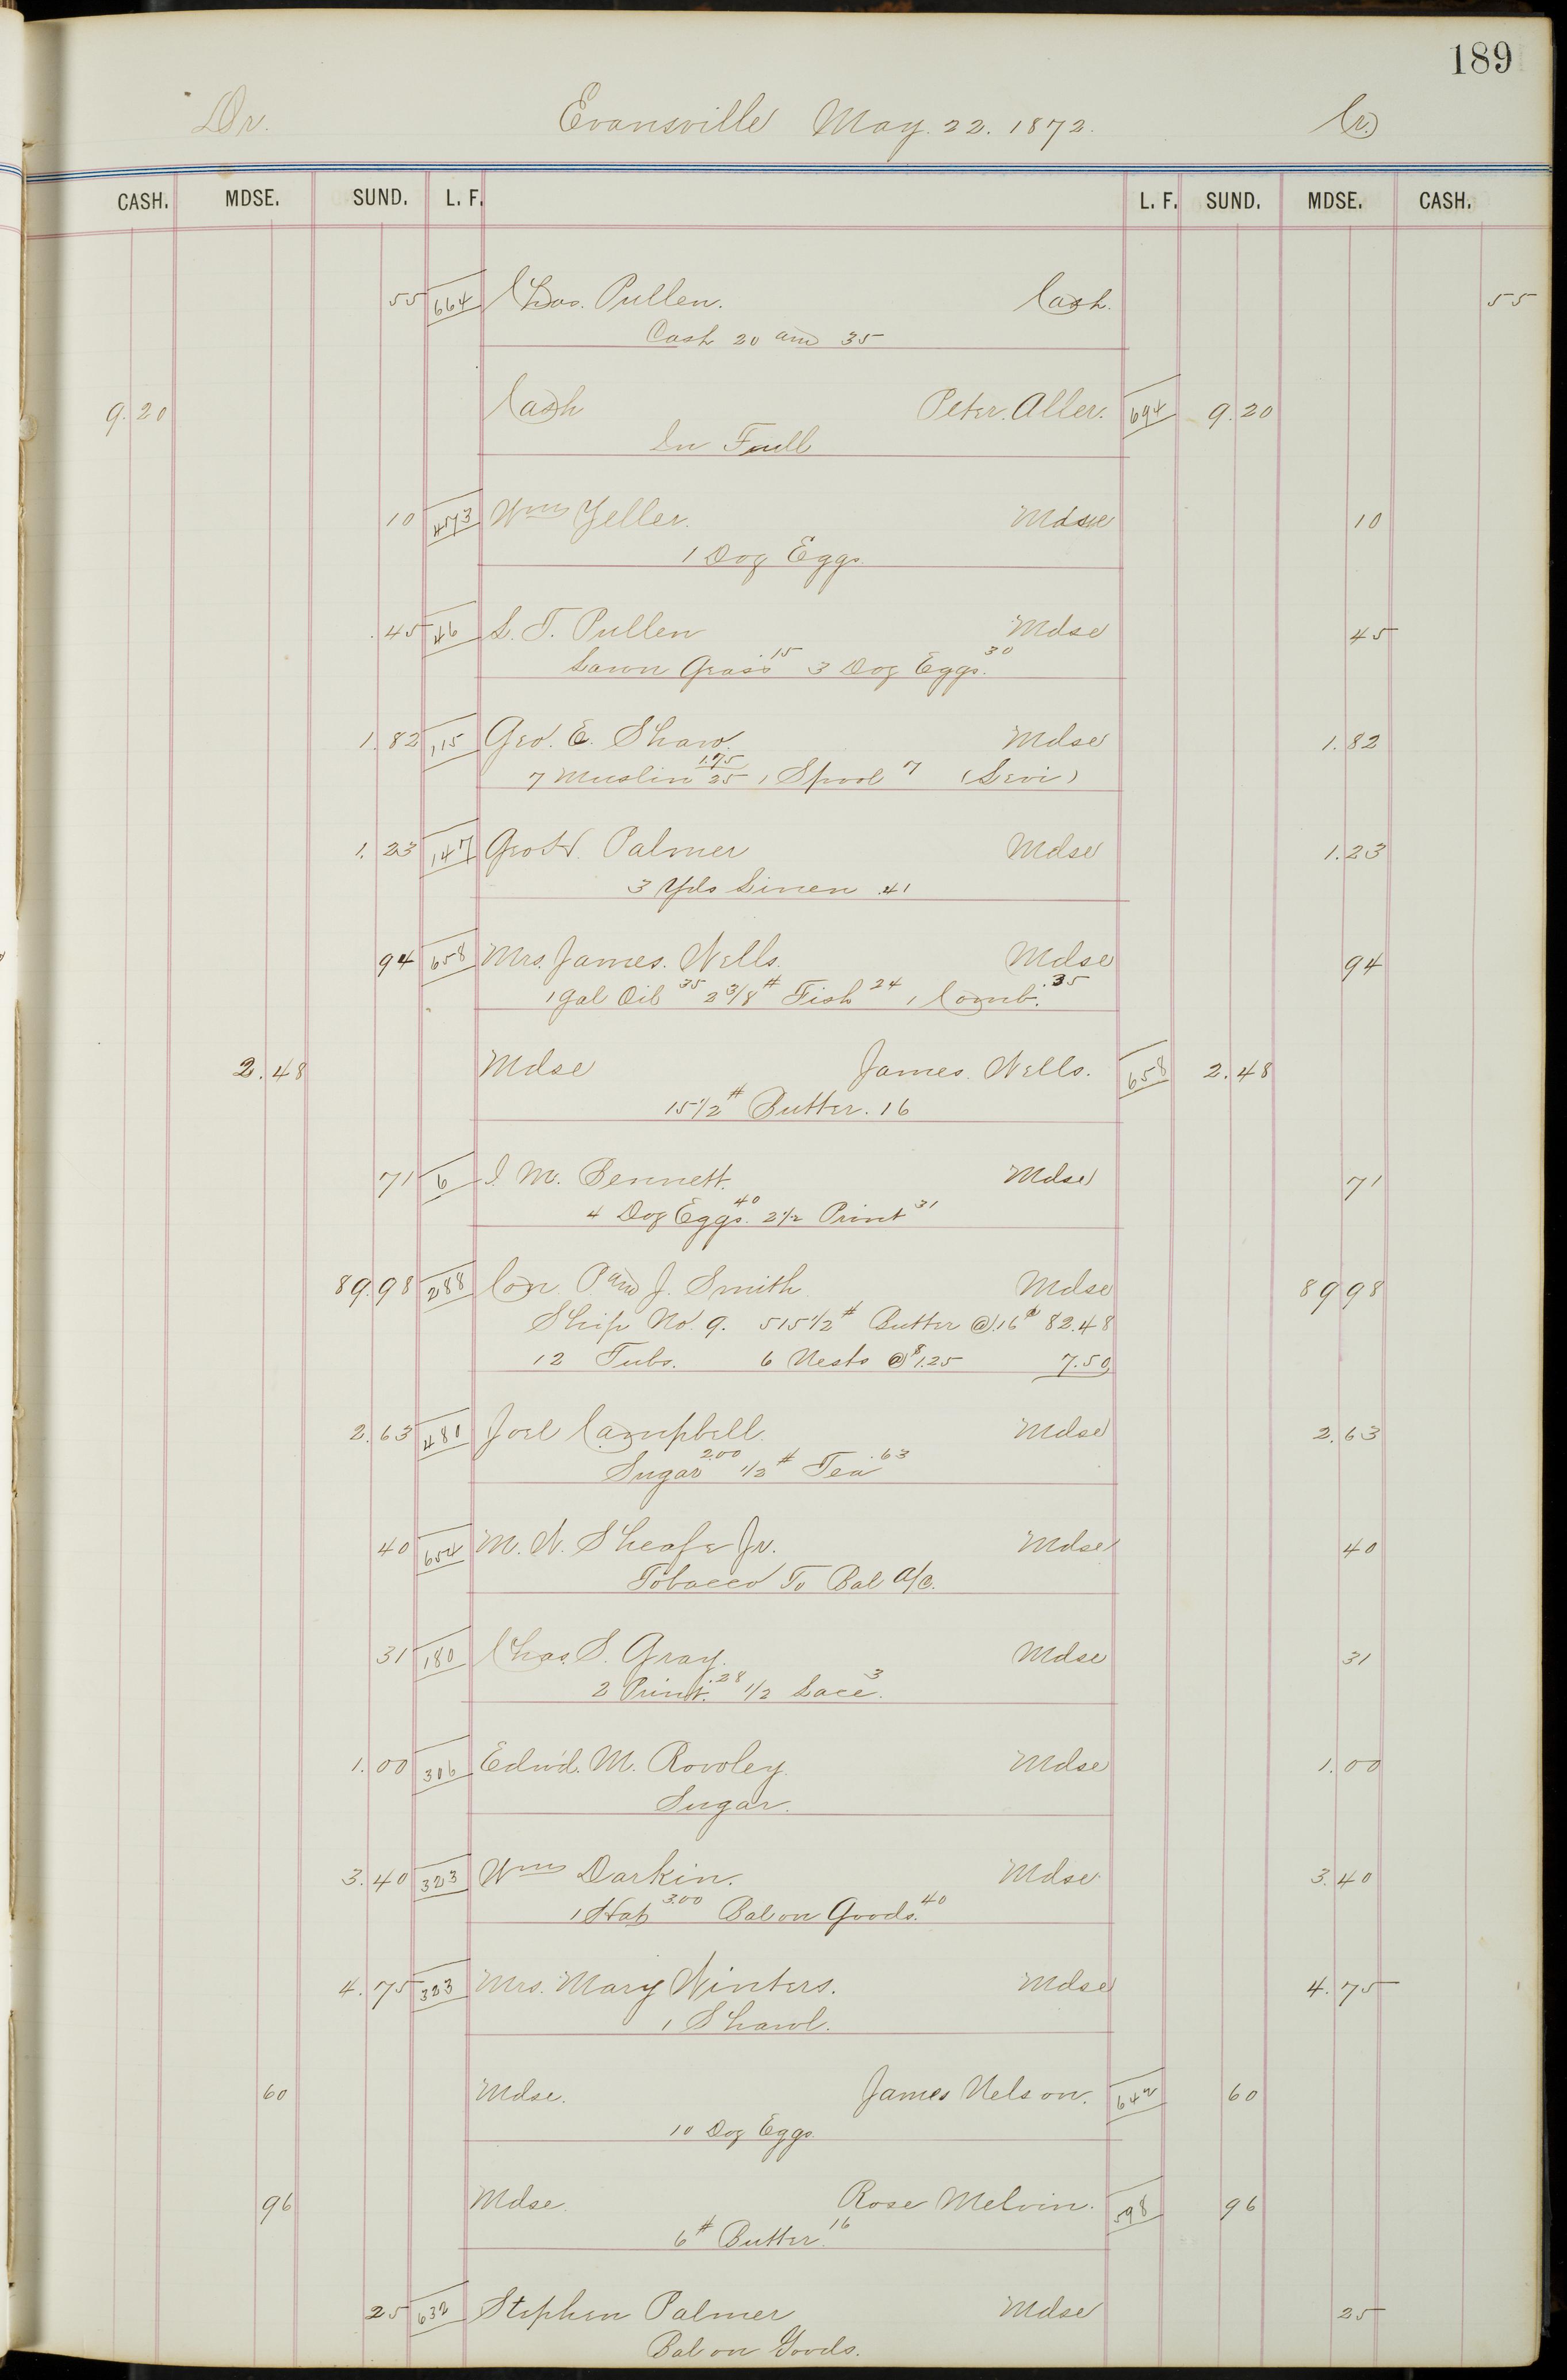 189
Dr. Evansville May. 22. 1872. Cr.
CASH. MDSE. SUND. L. F. L. F. SUND. MDSE. CASH.
55 664 Chas. Pullen. Cash. 55
Cash 20 and 35
9.20 Cash Peter. Aller. 694 9.20
In Full
10 473 Wm Yeller. Mdse 10
1 Doz Eggs.
.45 46 L. T. Pullen Mdse 45
Lawn Grass .15 3 Doz Eggs. 30
1.82 115 Geo. E. Shaw. Mdse 1.82
7 Muslin 1.75 25 1 Spool 7 (Levi)
1.23 147 Geo W. Palmer Mdse 1.23
3 Yds Linen .41
94 658 Mrs. James. Wells. Mdse 94
1 Gal Oil 35 2 3/8 # Fish 24 1 Comb. .35
2.48 Mdse James. Wells. 658 2.48
15 1/2 # Butter. 16
71 6 I. M. Bennett. Mdse 71
4 Doz Eggs. 40 2 1/2 Print 31
89.98 288 Con. P and J. Smith Mdse 89 98
Ship No. 9. 515 1/2 # Butter @ .16 82.48
12 Tubs. 6 Nests @ $1.25 7.50
2.63 480 Joel Campbell. Mdse 2.63
Sugar 2.00 1/2 # Tea .63
40 654 M. W. Sheafe Jr. Mdse 40
Tobacco To Bal a/c.
31 180 Chas. S. Gray. Mdse 31
2 Print. .28 1/2 Lace. 3
1.00 306 Edwd. M. Rowley. Mdse 1.00
Sugar.
3.40 323 Wm Darkin. Mdse 3.40
1 Hat 3.00 Bal on Goods. 40
4.75 323 Mrs. Mary Winters. Mdse 4.75
1 Shawl.
60 Mdse. James Nelson. 642 60
10 Doz Eggs.
96 Mdse. Rose Melvin. 598 96
6 # Butter. 16
25 632 Stephen Palmer Mdse 25
Bal on Goods.